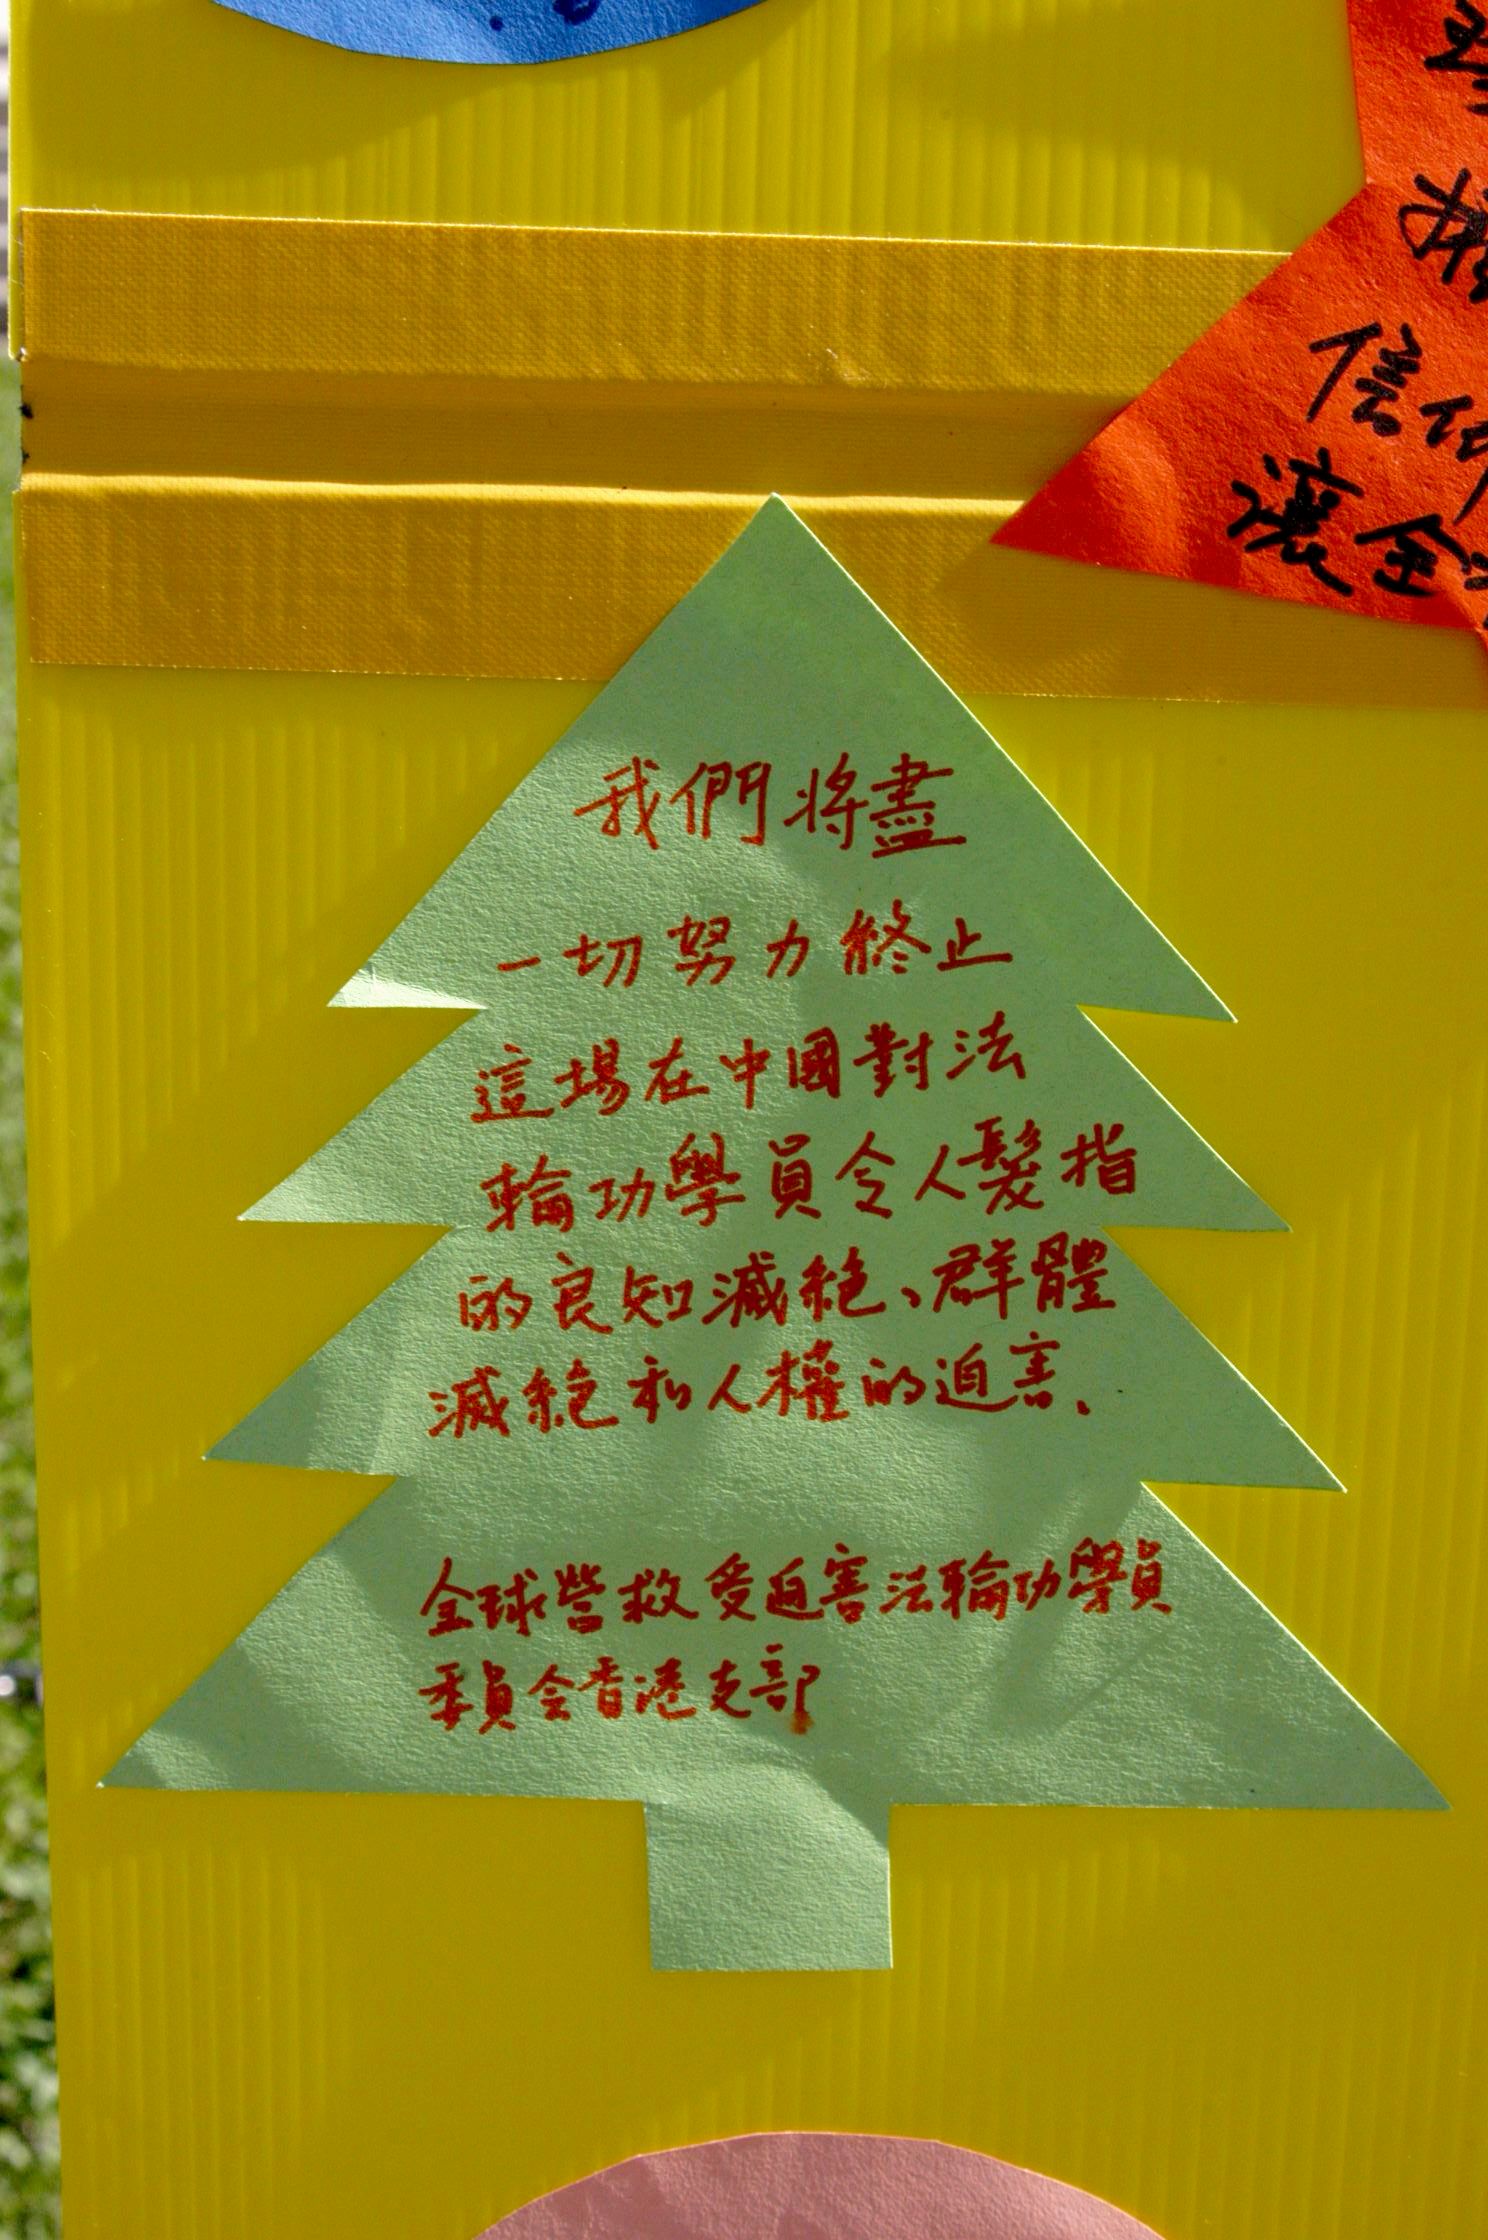 我們將盡
一切努力終止
這場在中國對法
輪功學員令人髮指
的良知滅絕、群體
滅絕和人權的迫害、
全球營救受迫害法輪功學員
委員会香港支部
信仰
讓全